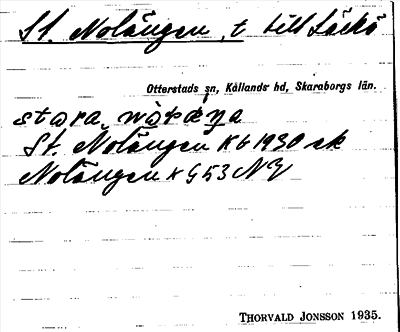 St. Nolängen, t. till Läckö
Otterstads sn, Kållands hd, Skaraborgs län.
stora
St. Nolängen K6 1930 ek
Nolängen K G53 NV
THORVALD JONSSON 1935.